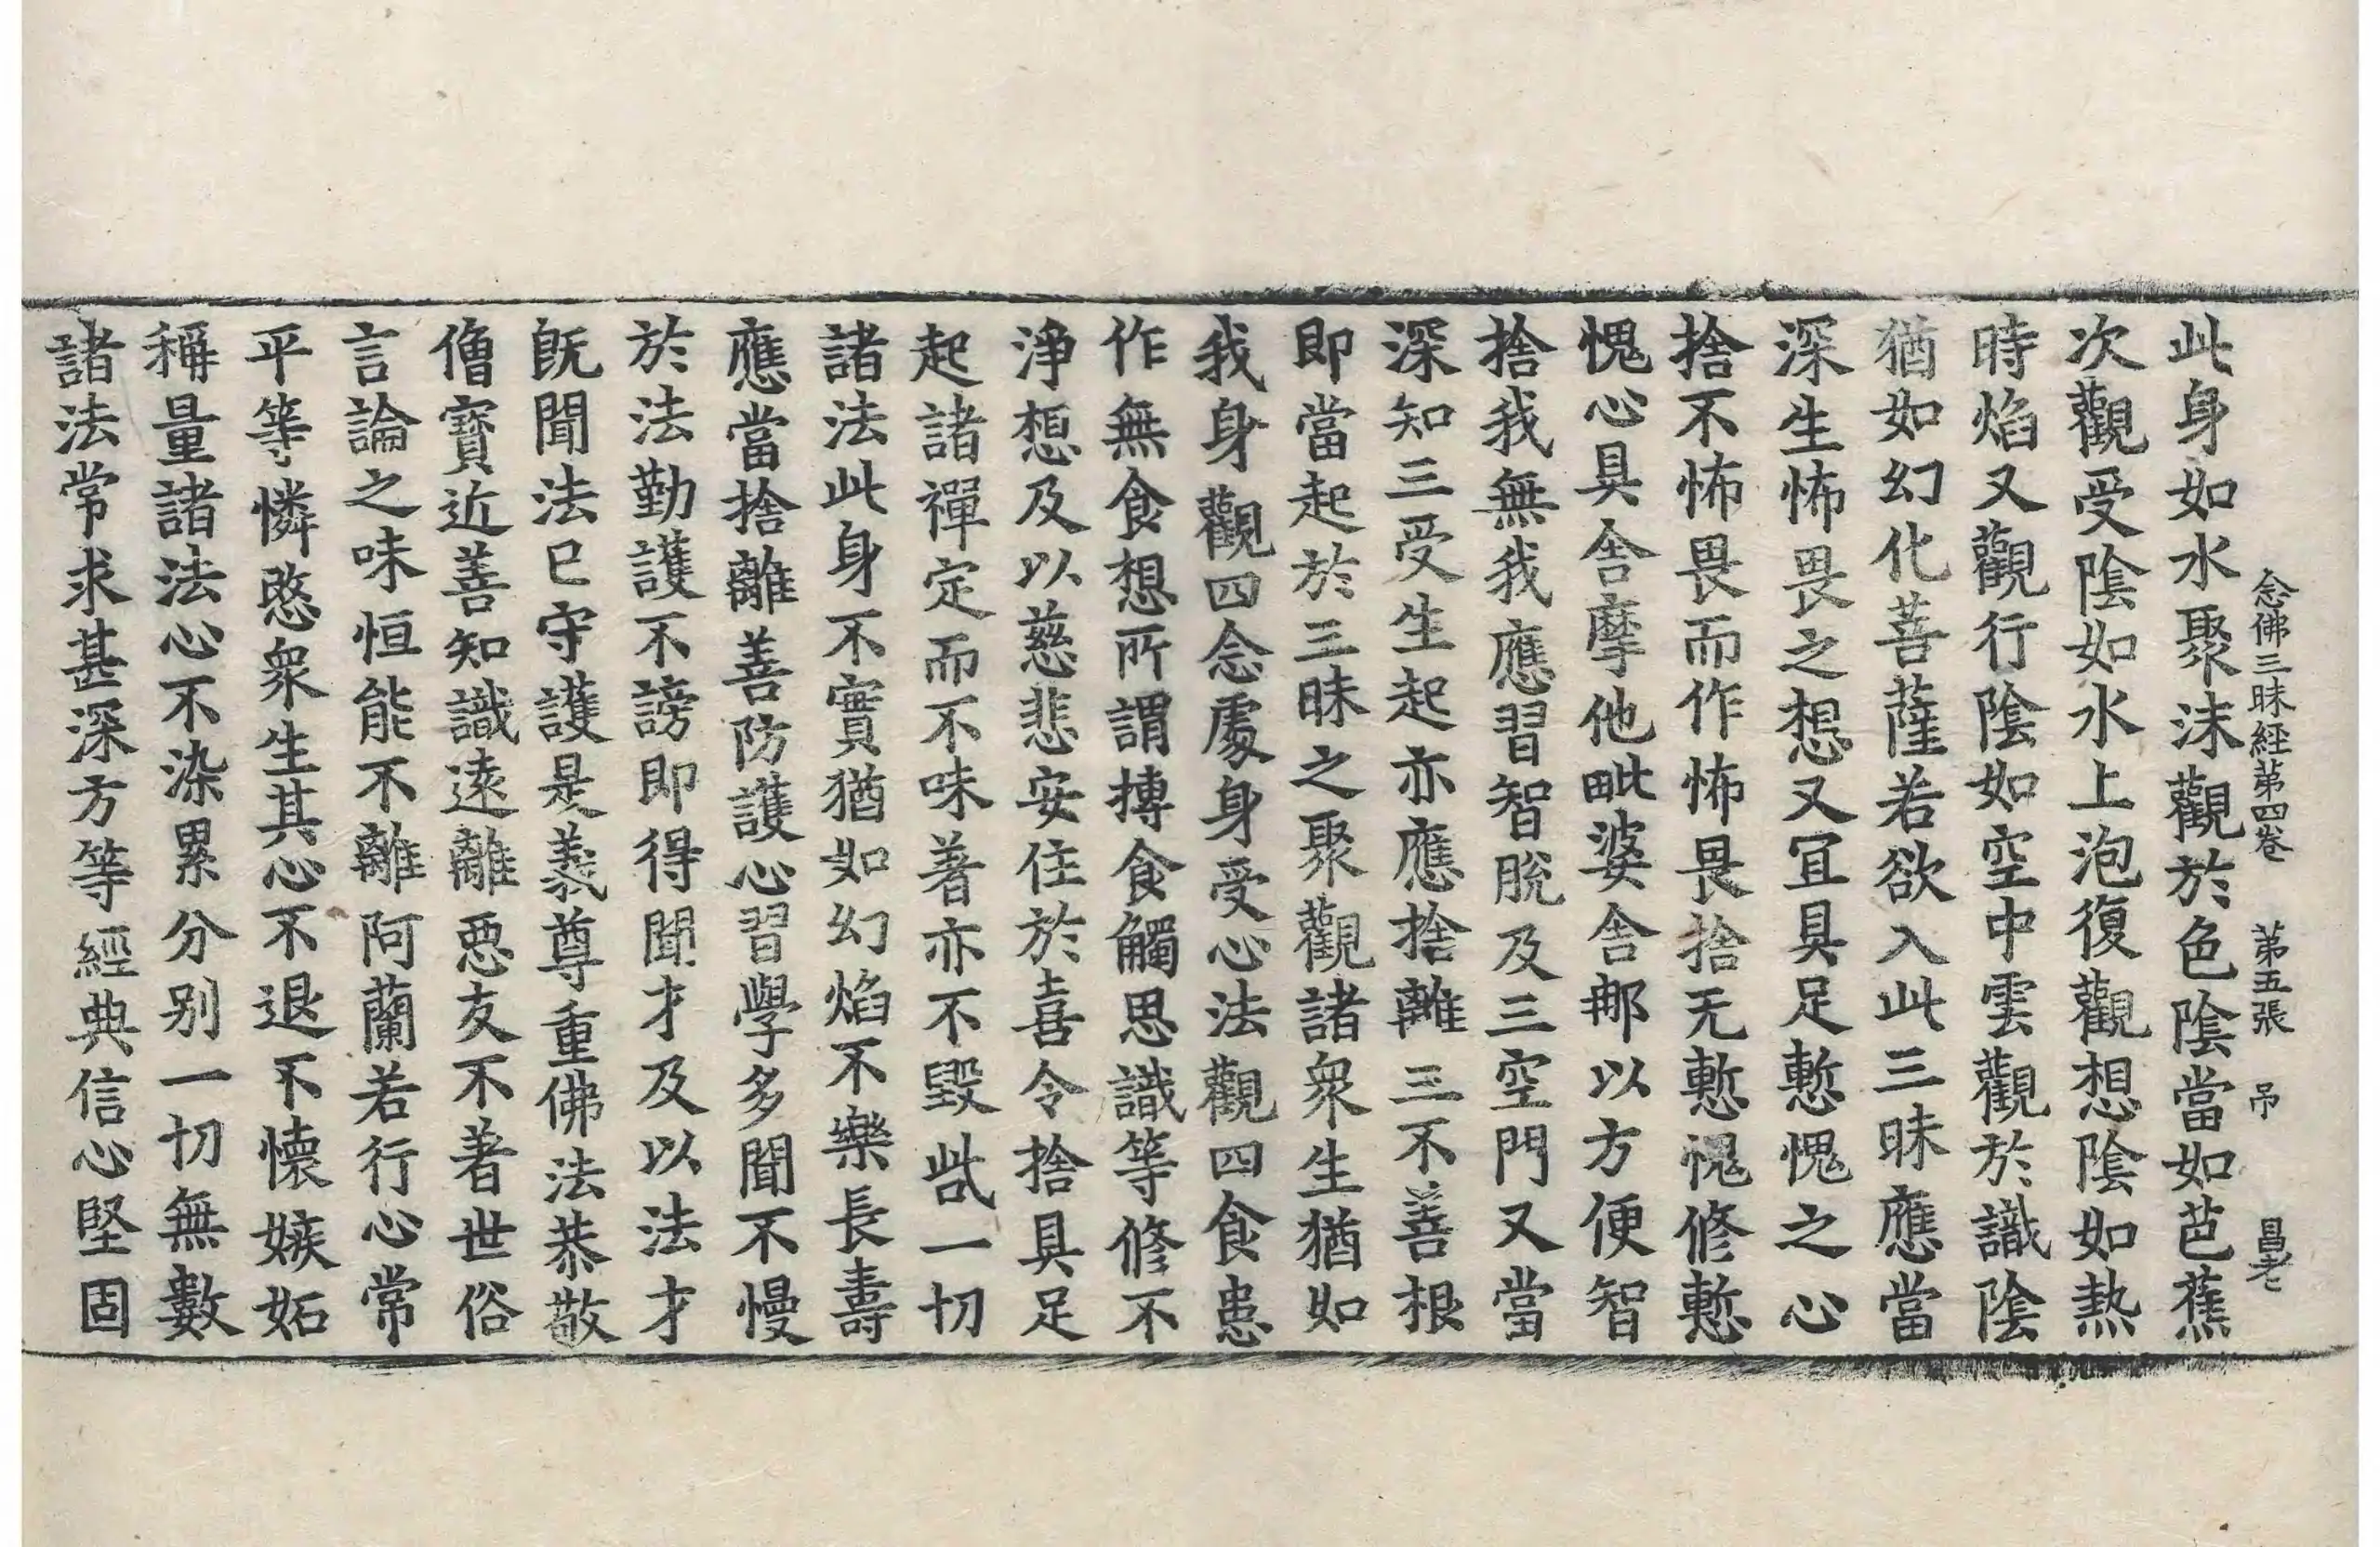 念佛三昧經第四卷　第五張　吊　昌老
此身如水聚沫觀於色陰當如芭蕉
次觀受陰如水上泡復觀想陰如熱
時焰又觀行陰如空中雲觀於識陰
猶如幻化菩薩若欲入此三昧應當
深生怖畏之想又冝具足慙愧之心
捨不怖畏而作怖畏捨无慙愧修慙
愧心具舍摩他毗婆舍那以方便智
捨我無我應習智脫及三空門又當
深知三受生起亦應捨離三不善根
即當起於三昧之聚觀諸衆生猶如
我身觀四念處身受心法觀四食患
作無食想所謂摶食觸思識等修不
淨想及以慈悲安住於喜令捨具足
起諸禪定而不味著亦不毀呰一切
諸法此身不實猶如幻焰不樂長壽
應當捨離善防護心習學多聞不慢
於法勤護不謗即得聞才及以法才
旣聞法已守護是義尊重佛法恭敬
僧寶近善知識遠離惡友不著世俗
言論之味恒能不離阿蘭若行心常
平等憐愍衆生其心不退不懷嫉妬
稱量諸法心不染累分别一切無數
諸法常求甚深方等經典信心堅固